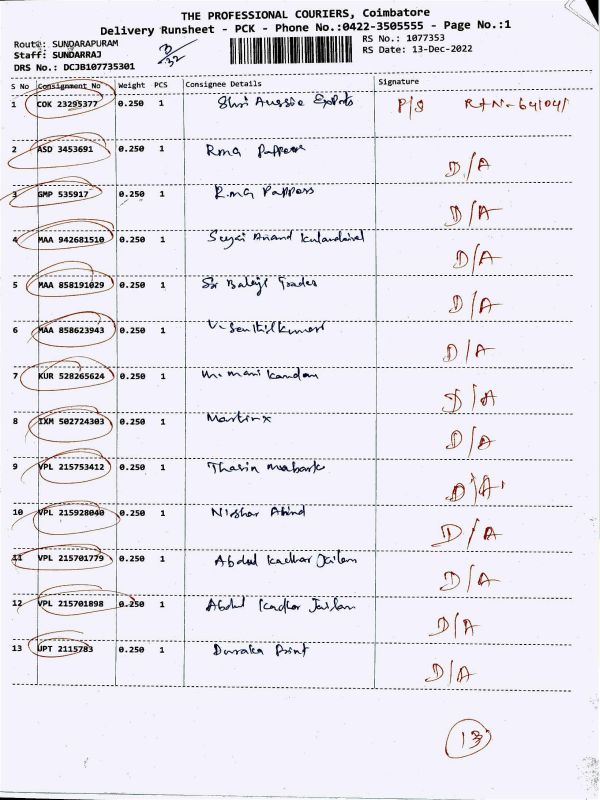 THE PROFESSIONAL COURIERS, Coimbatore
Delivery Runsheet - PCK - Phone No.:0422-3505555 - Page No.:1
Route: SUNDARAPURAM
Staff: SUNDARRAJ
DRS No.: DCJB107735301
RS No.: 1077353
RS Date: 13-Dec-2022
S No Consignment No Weight PCS Consignee Details Signature
1 COK 23295377 0.250 1 Shri Aussie Exports P/S RTN-641041
2 ASD 3453691 0.250 1 RMG Pappers D/A
3 GMP 535917 0.250 1 R.MG Pappers D/A
4 MAA 942681510 0.250 1 Anand D/A
5 MAA 858191029 0.250 1 Sri Balaji Trades D/A
6 MAA 858623943 0.250 1 V. Senthilkumar D/A
7 KUR 528265624 0.250 1 M. Mani Kandan D/A
8 IXM 502724303 0.250 1 Martinx D/A
9 VPL 215753412 0.250 1 Tharin D/A
10 VPL 215928040 0.250 1 D/A
11 VPL 215701779 0.250 1 Abdul Kadhar Jailani D/A
12 VPL 215701898 0.250 1 Abdul Kadhar Jailani D/A
13 UPT 2115783 0.250 1 Print D/A
13